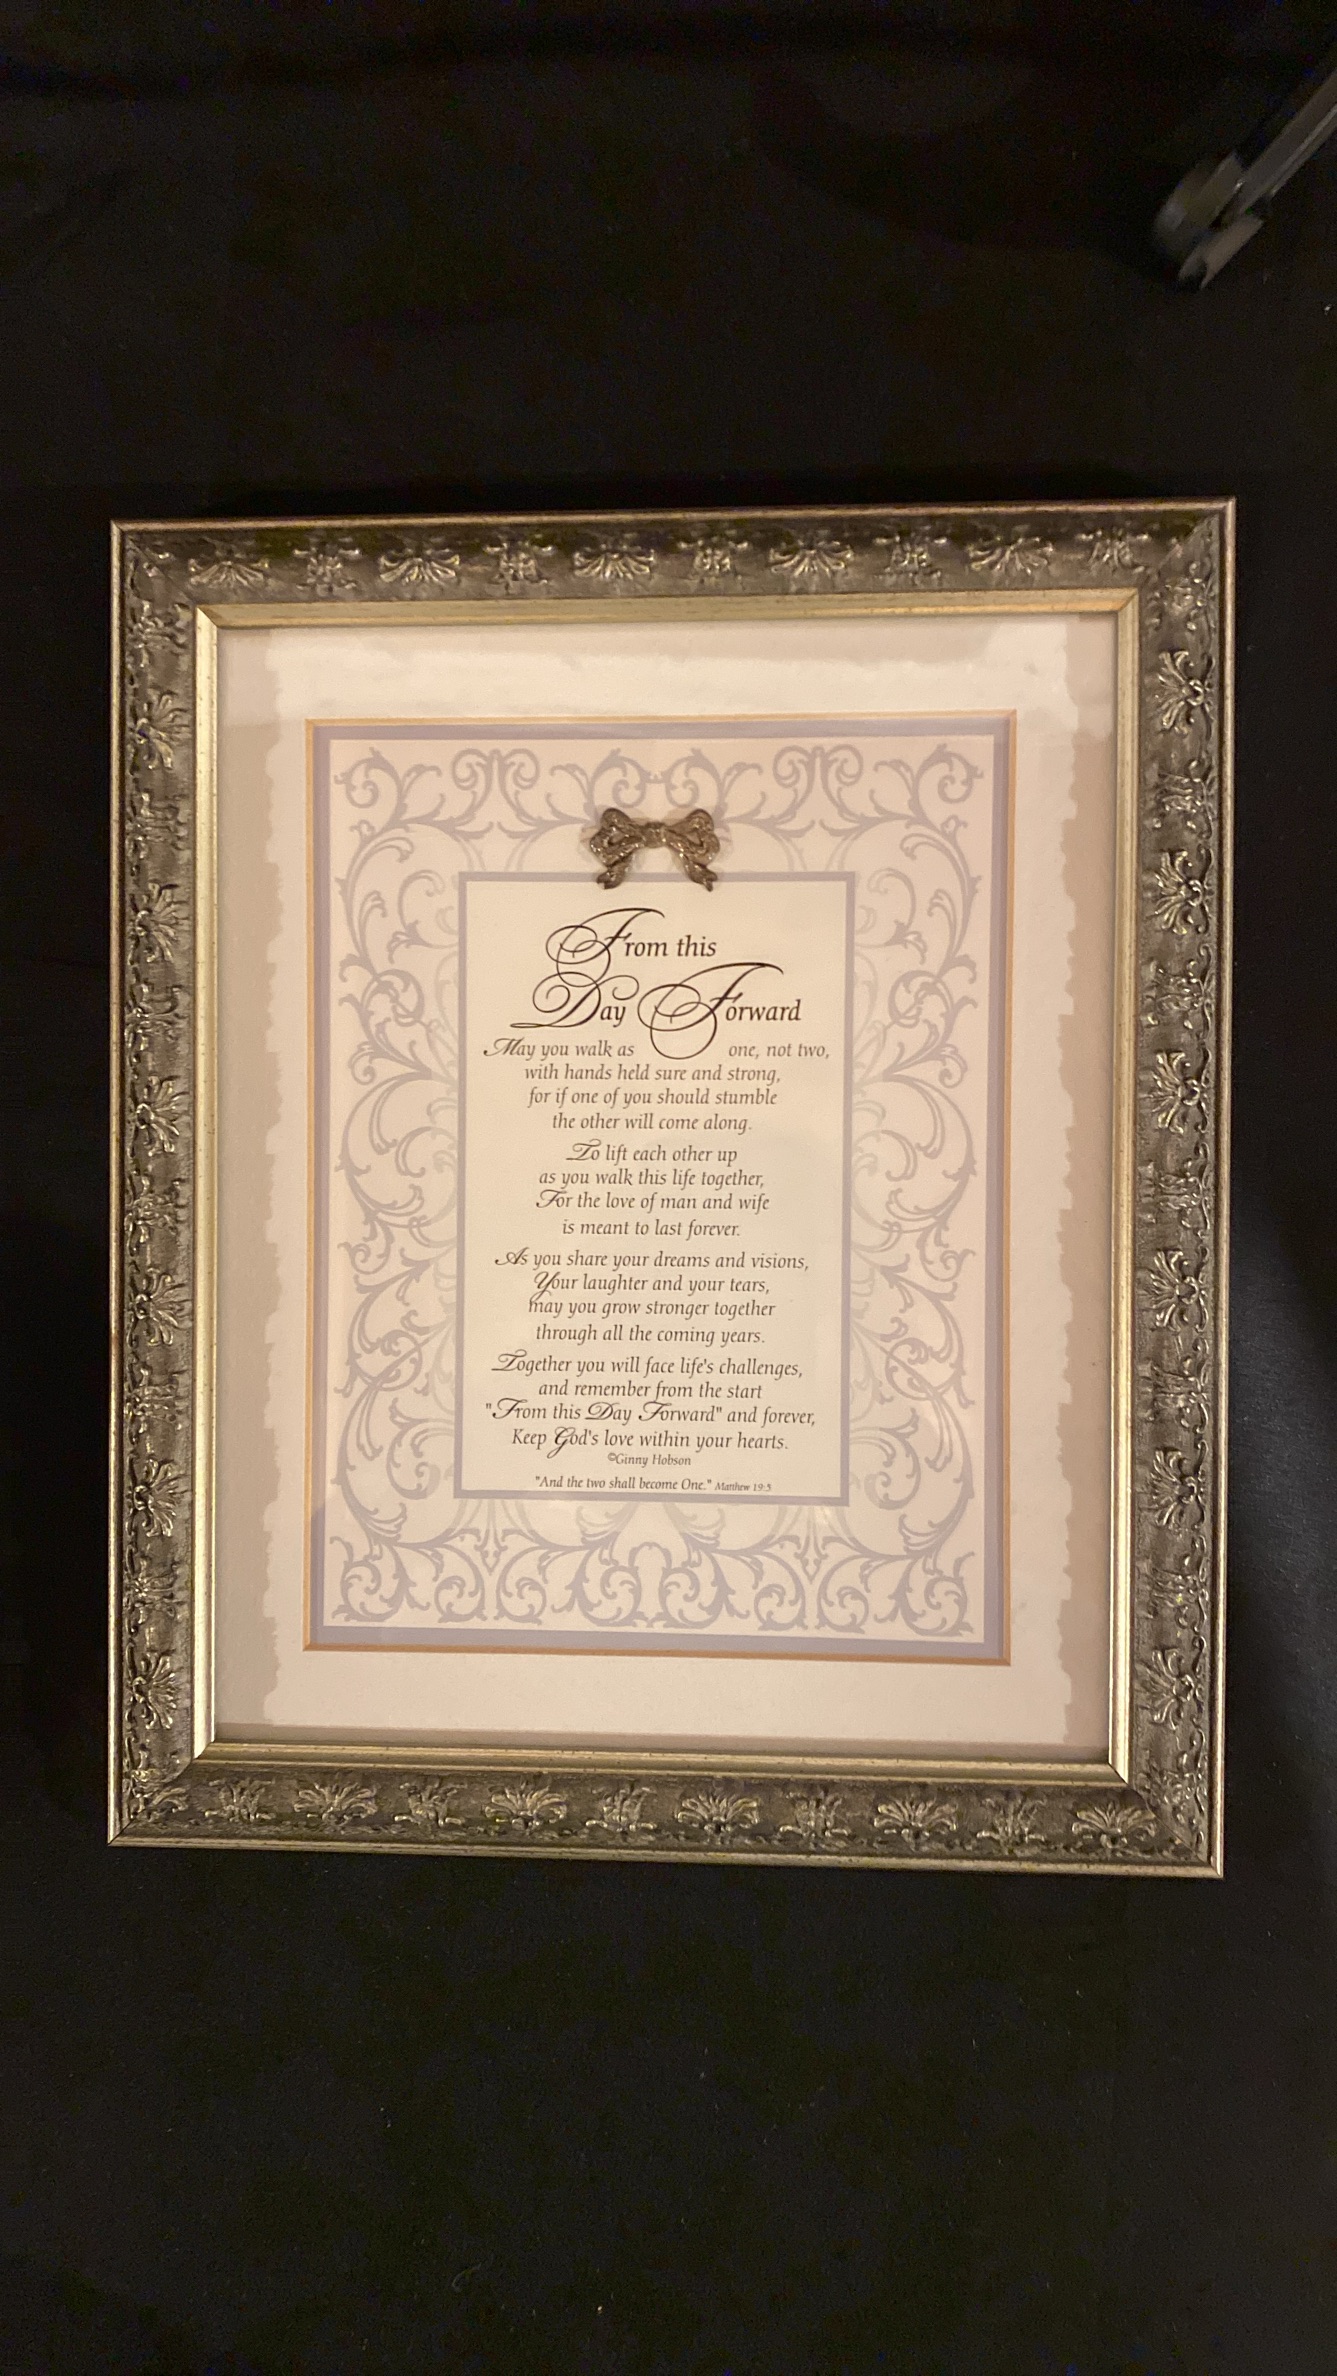 From this
Day Forward
May you walk as one, not two,
with hands held sure and strong,
for if one of you should stumble
the other will come along.
To lift each other up
as you walk this life together,
For the love of man and wife
is meant to last forever.
As you share your dreams and visions,
Your laughter and your tears,
may you grow stronger together
through all the coming years.
Together you will face life's challenges,
and remember from the start
"From this Day Forward" and forever,
Keep God's love within your hearts.
©Ginny Hobson
"And the two shall become One." Matthew 19:5